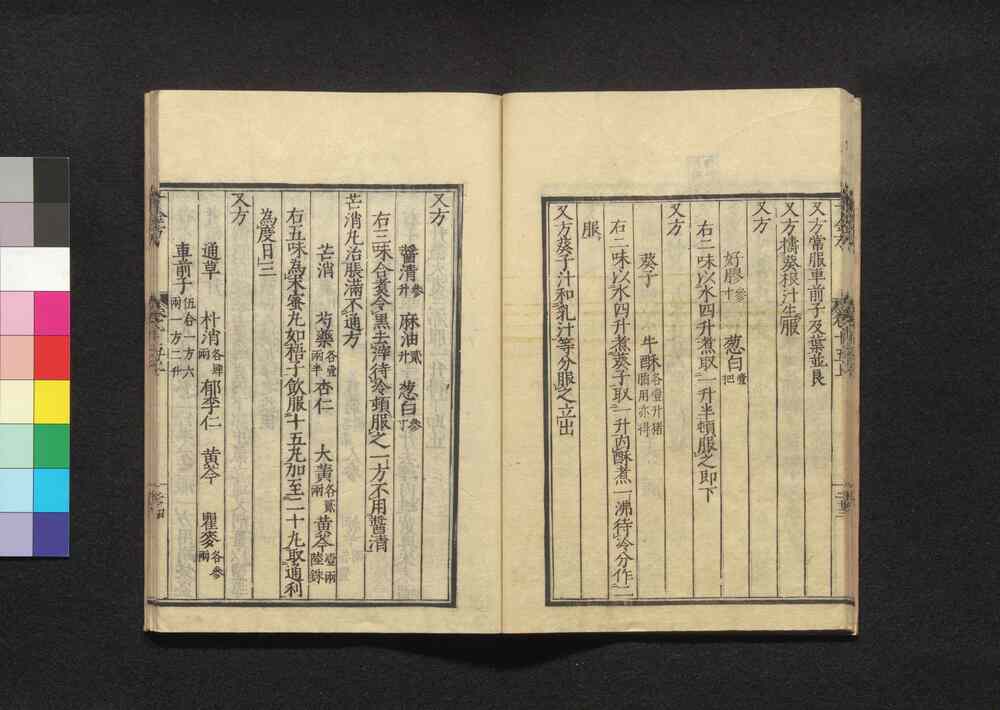 又方常服車前子及葉並良
又方擣葵根汁生服
又方
好膠三寸參 葱白壹把
右二味以水四升煮取一升半頓服之即下
又方
葵子 牛酥各壹升猪脂用亦得
右二味以水四升煮葵子取一升内酥煮一沸待冷分作二
服
又方葵子汁和乳汁等分服之立出
又方
醬清參升 麻油貳升 葱白參寸
右三味合煮令黒去滓待冷頓服之一方不用醬清
芒消丸治脹滿不通方
芒消 芍藥各壹兩半 杏仁 大黄各貳兩 黄芩壹兩陸銖
右五味為末蜜丸如梧子飲服十五丸加至二十丸取通利
為度日三
又方
通草 朴消各肆兩 郁李仁 黄芩 瞿麥各參兩
車前子伍合一方六兩一方二升